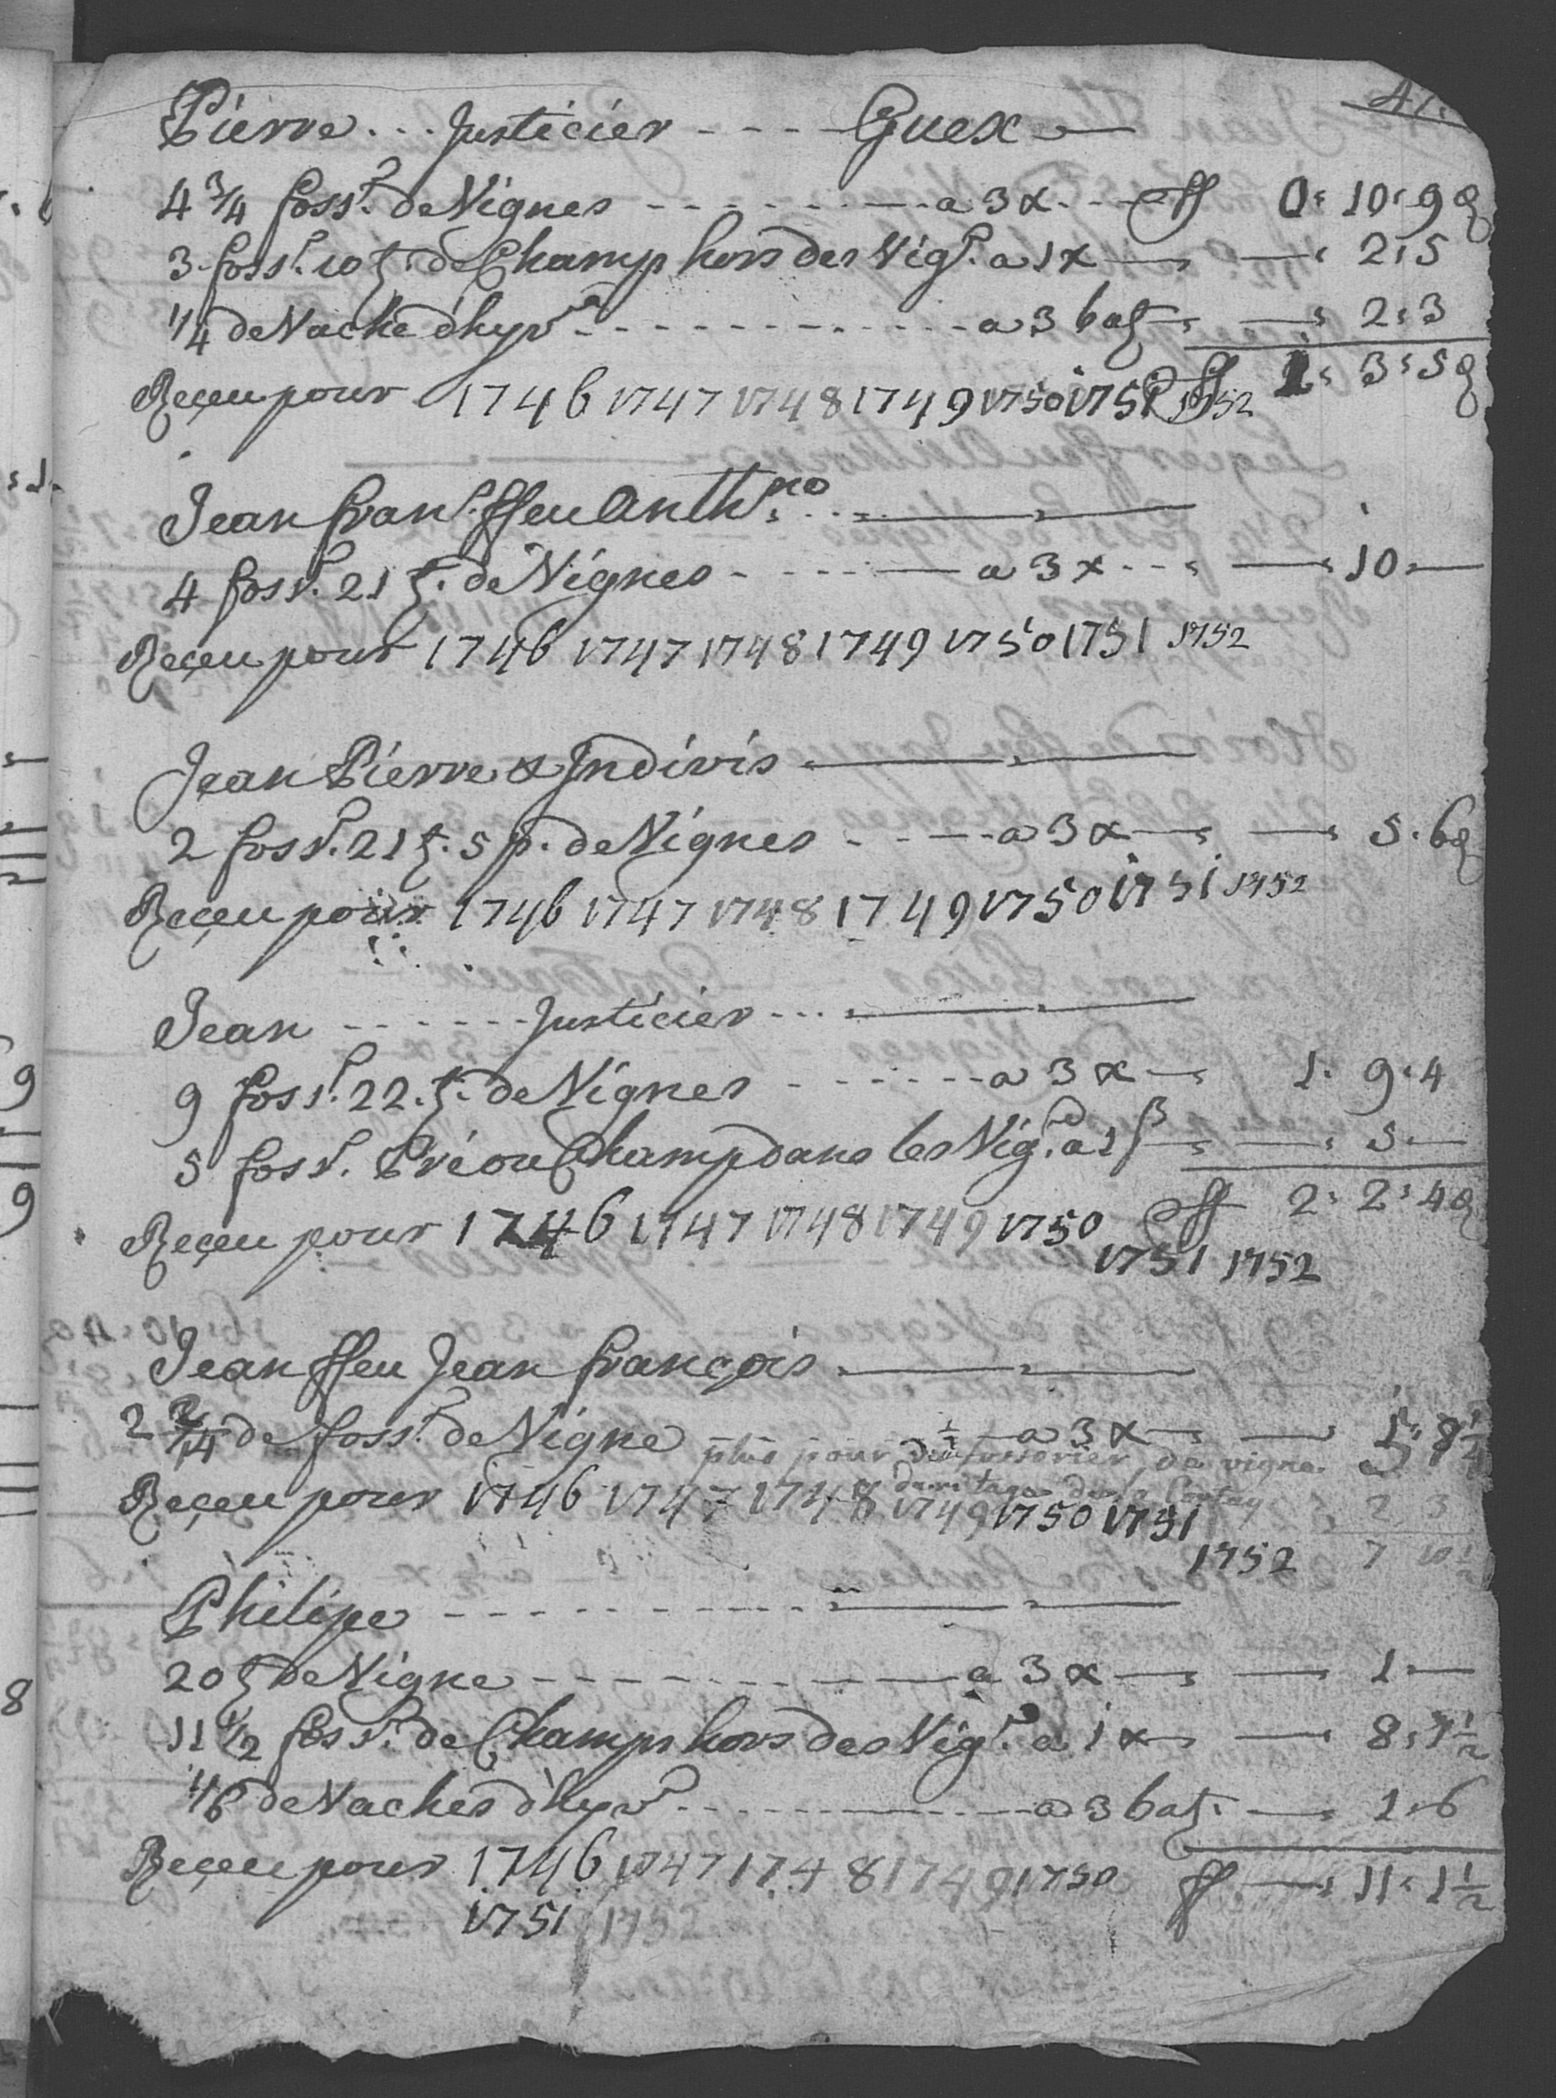 41.
Pierre ... Justicier - - - - Guex
4 3/4 foss.r de Vignes - - - - a 3 x - - - ff 0: 10: 9 d
3 foss.r 10 t. de Champ hors des Vig.s a 1 x — 2: 5
1/4 de Vache d'hyv.r - - - - a 3 batz — 2: 3
ff 1: 3: 5 d
Reçeu pour 1746 1747 1748 1749 1750 1751 1752
Jean fran.s ffeu Anth.no
4 foss.r 21 t. de Vignes - - - - a 3 x - - — 10 —
Reçeu pour 1746 1747 1748 1749 1750 1751 1752
Jean Pierre & Indivis
2 foss.r 21 t. 5 p. de Vignes - - - a 3 x — 5. 6 d
Reçeu pour 1746 1747 1748 1749 1750 1751 1752
Jean - - - - Justicier - - -
9 foss.r 22. t. de Vignes - - - - a 3 x — 1. 9. 4
5 foss.r Pré ou Champ dans les Vig.s a 1 ß — 5 —
ff 2: 2: 4 d
Reçeu pour 1746 1747 1748 1749 1750
1751 1752
Jean ffeu Jean françois
2 2/14 de foss.r de Vigne a 3 x — 5: 8 1/2
plus pour fossorier de vigne
2 3
Reçeu pour 1746 1747 1748 1749 1750 1751
1752 7 10 1/2
Philipe - - - -
20 t de Vigne - - - - a 3 x — 1 —
11 1/2 foss.r de Champs hors des Vig.s a 1 x — 8: 7 1/2
1/6 de Vaches d'hyv.r - - - - a 3 batz. — 1. 6
ff — 11: 1 1/2
Reçeu pour 1746 1747 1748 1749 1750
1751 1752